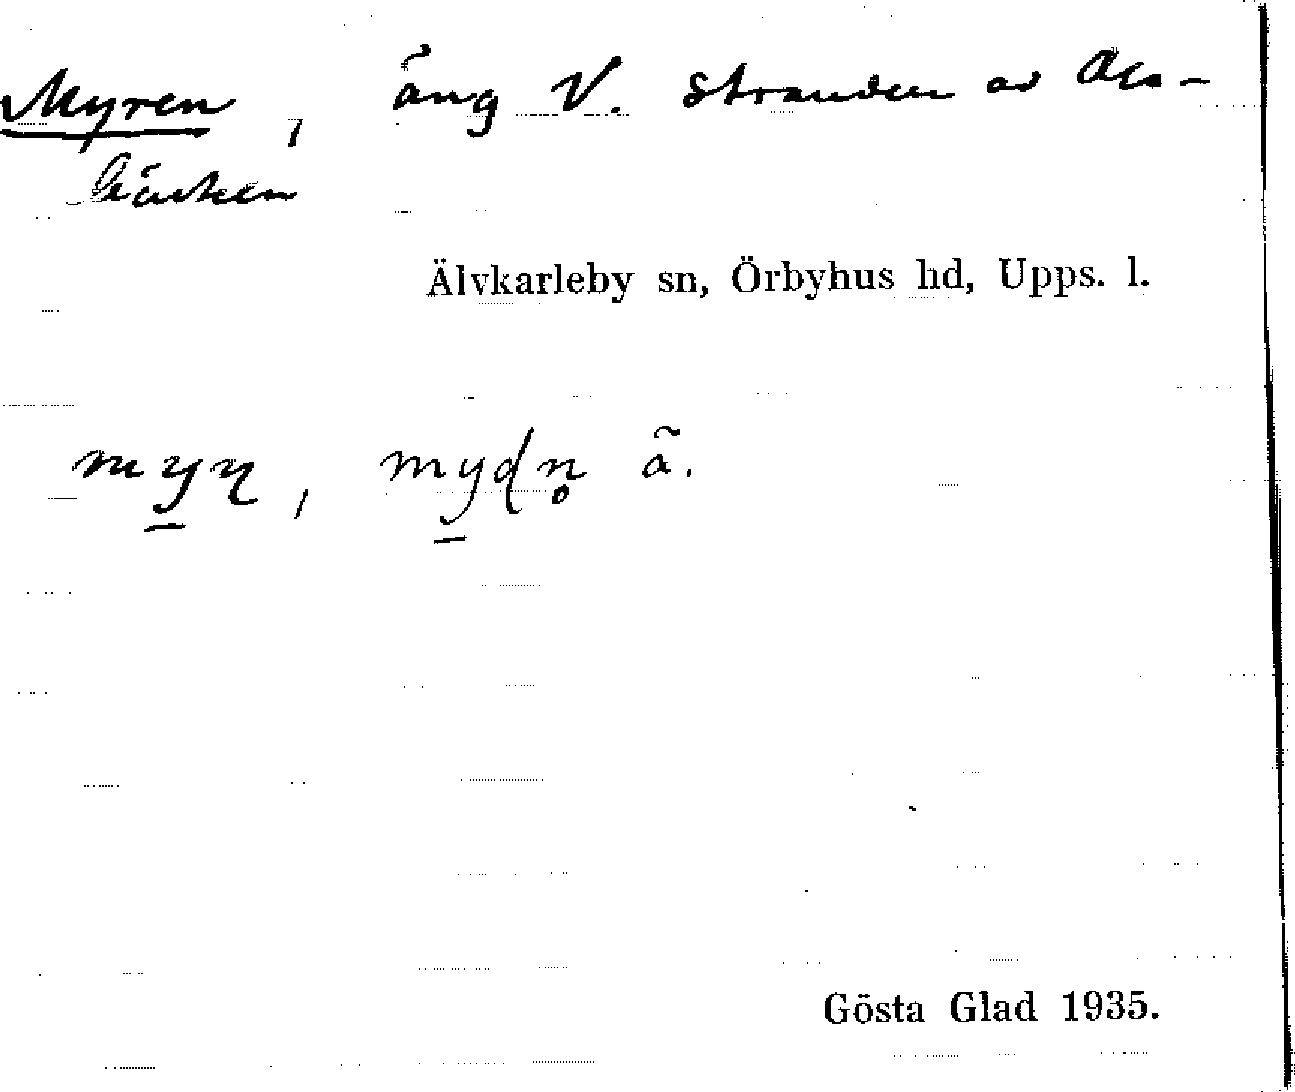 Myren, äng V. stranden av
Älvkarleby sn, Örbyhus hd, Upps. l.
myɳ, mydn̥ ã.
Gösta Glad 1935.